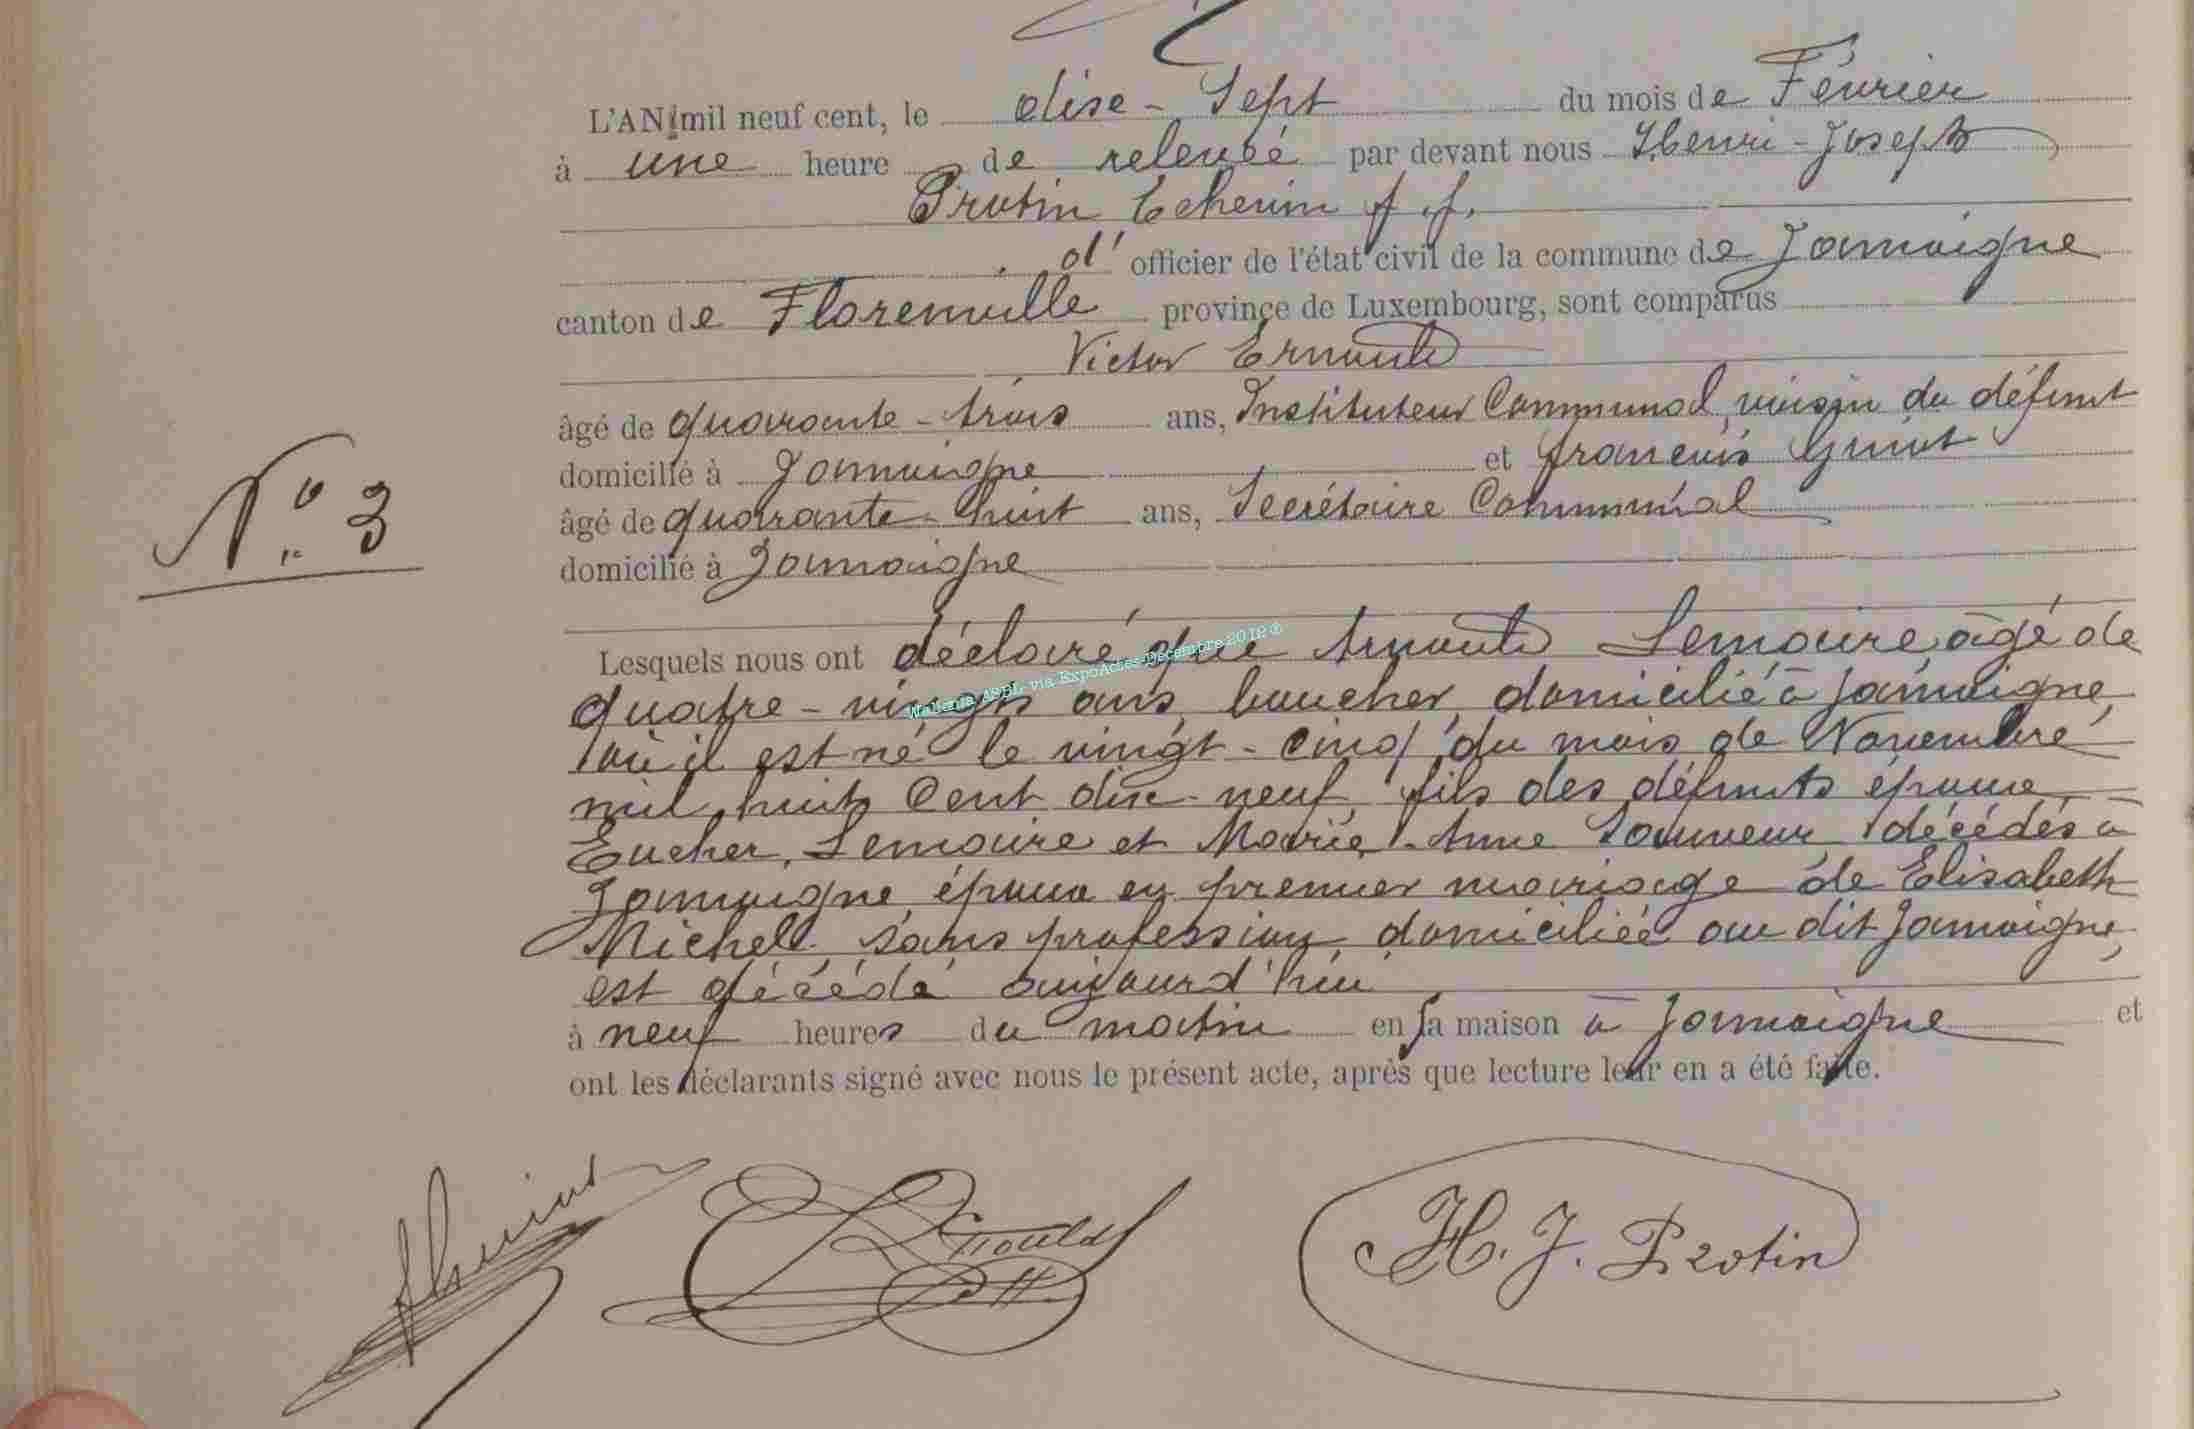 L'AN mil neuf cent, le dise-Sept du mois de Février
à une heure de relevée par devant nous Henri-Joseph
Protin Echevin f. f.
d' officier de l'état civil de la commune de Jamoigne
canton de Florenville province de Luxembourg, sont comparus
Victor Ernould
âgé de quarante-trois ans, Instituteur Communal, voisin du défunt
domicilié à Jamoigne et françois
N° 3
âgé de quarante-huit ans, Secrétaire Communal
domicilié à Jamoigne
Lesquels nous ont déclaré que Arnould Lemaire, âgé de
quatre-vingts ans, boucher, domicilié à Jamoigne,
où il est né le vingt-cinq du mois de Novembre
mil huit Cent dix-neuf, fils des défunts époux
Eucher Lemaire et Marie-Anne Sauveur, décédés à
Jamoigne, époux en premier mariage de Elisabeth
Michel, sans profession, domiciliée au dit Jamoigne,
est décédé aujourd'hui
à neuf heures du matin en sa maison à Jamoigne et
ont les déclarants signé avec nous le présent acte, après que lecture leur en a été faite.
Wallonia ASBL via ExpoActes Décembre 2012 ©
H. J. Protin